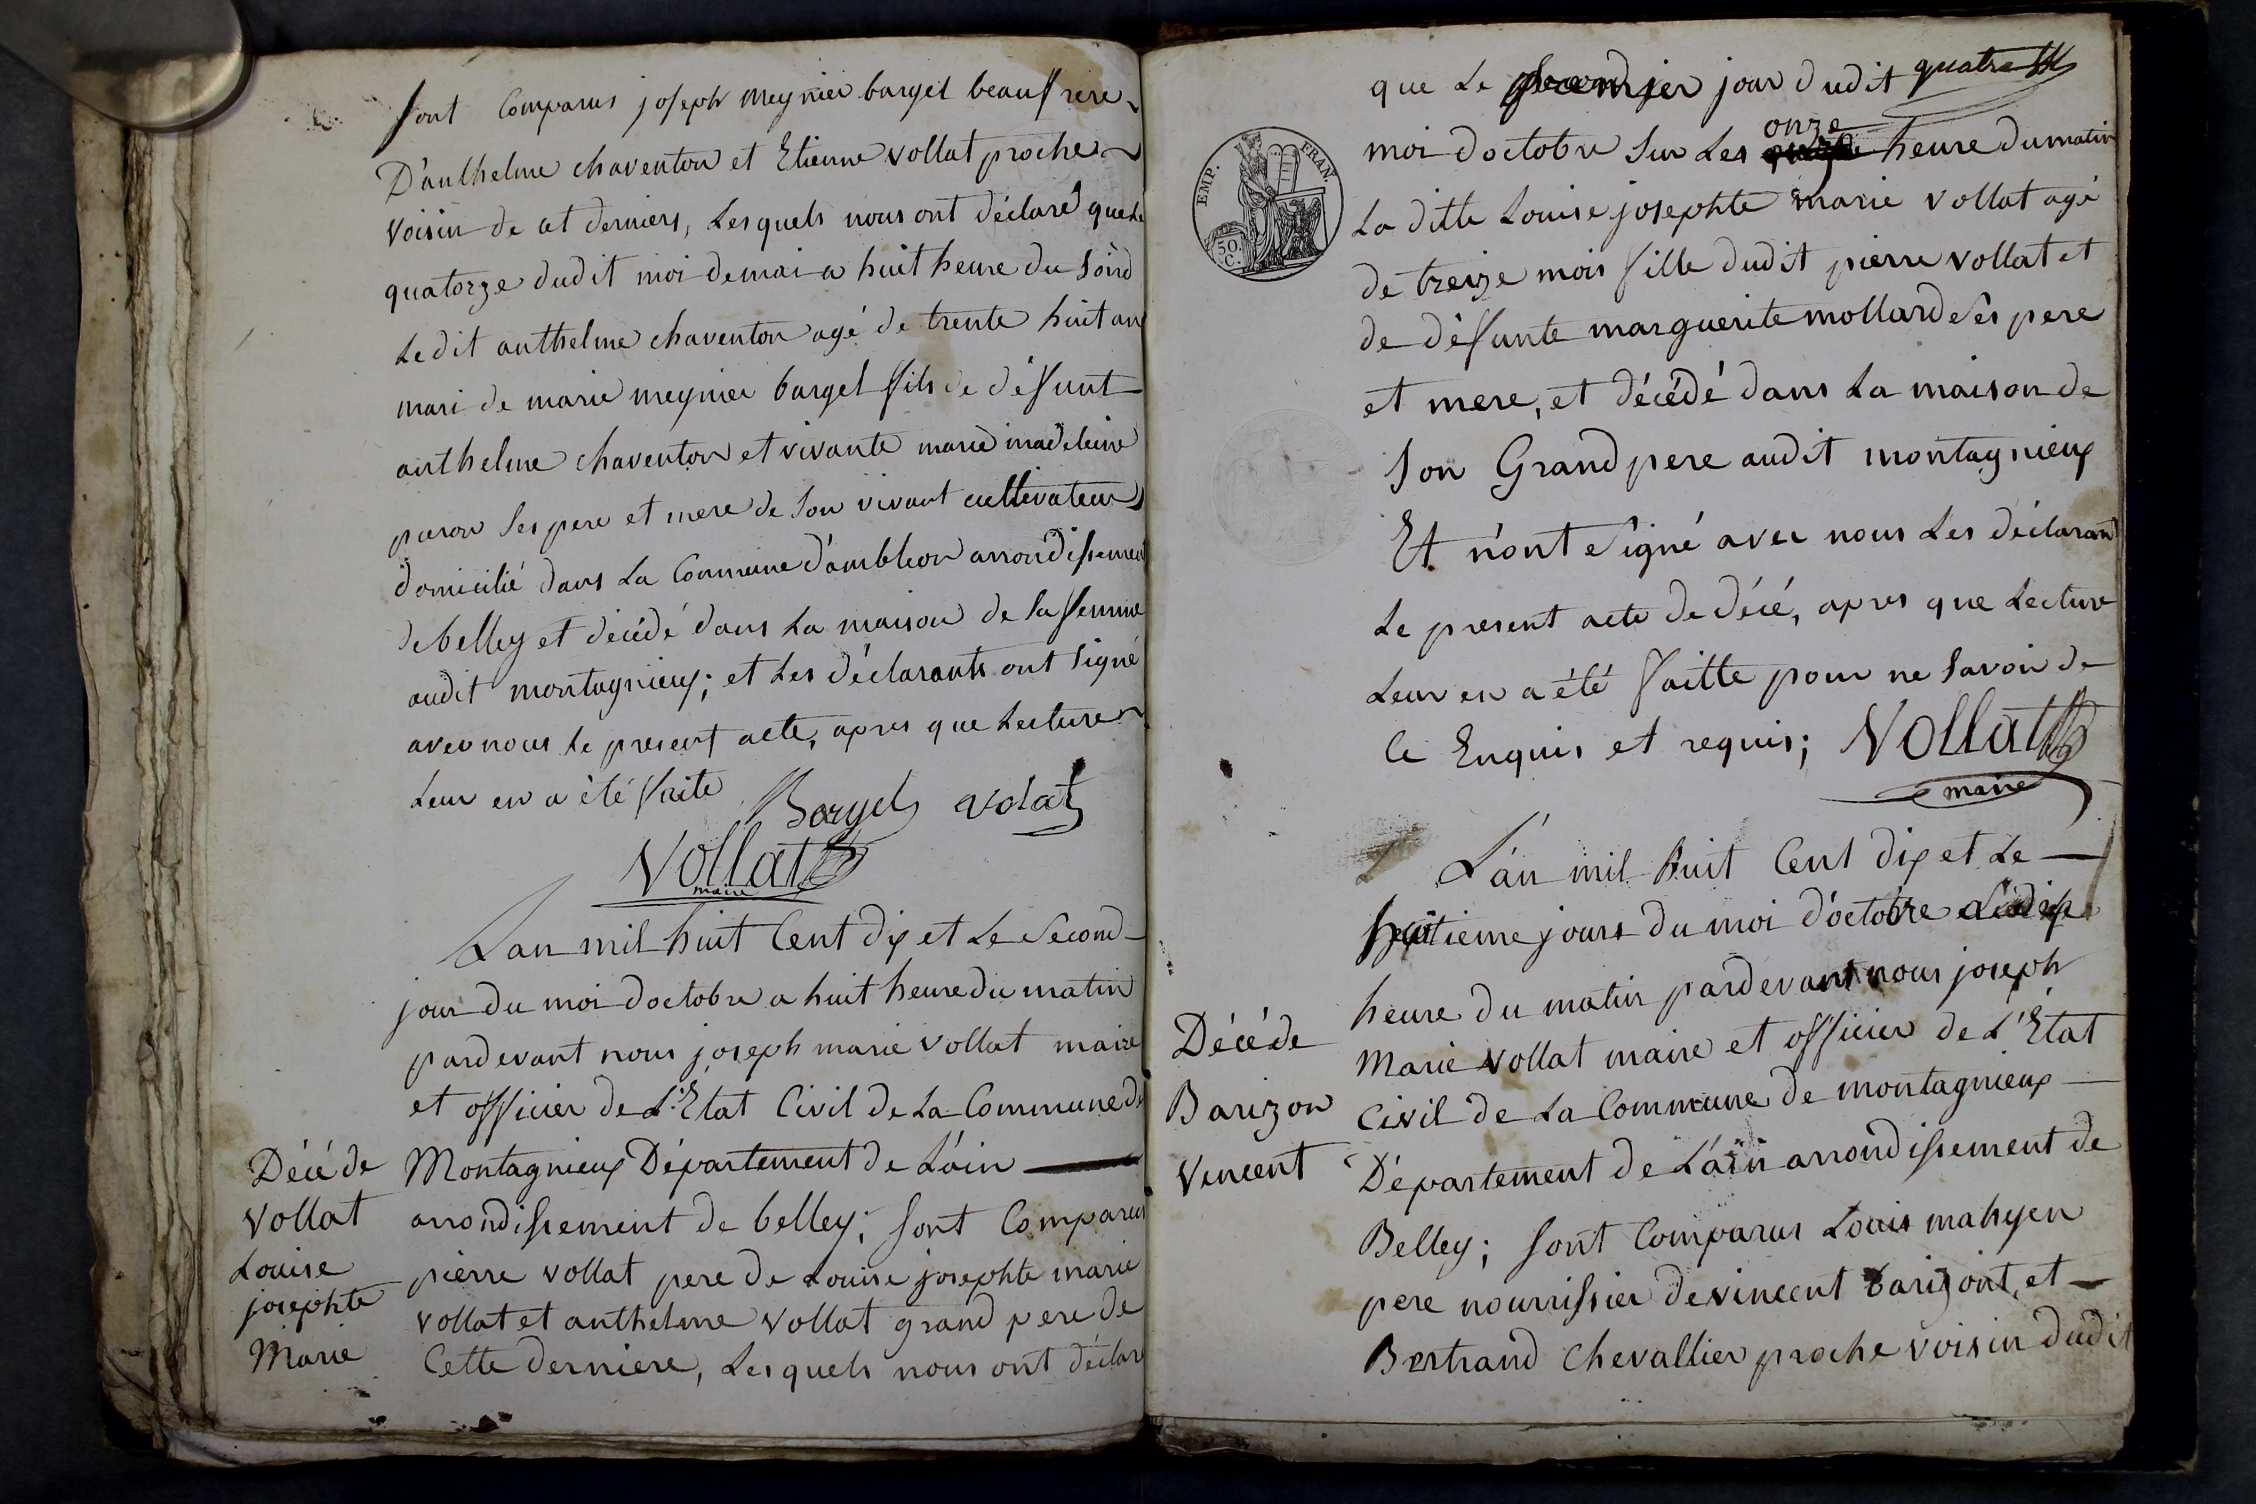 sont Comparus joseph meynier bargel beaufrere
D'anthelme chaventon et Etienne vollat proche
voisin de cet derniers, Lesquels nous ont déclaré que Le
quatorze dudit moi de mai a huit heure du soird
Le dit anthelme chaventon agé de trente huit an
mari de marie meynier bargel fils de défunt
anthelme chaventon et vivante marie madeleine
ses pere et mere de son vivant cultivateur
domicilié dans La Commune d'ambleon arrondissement
de belley et décédé dans La maison de sa femme
audit montagnieux; et Les déclarants ont signé
avec nous Le present acte, apres que Lecture
Leur en a été faite Bargel volat
Vollat
maire
L'an mil huit Cent dix et Le Second
jour du moi doctobre a huit heure du matin
pardevant nous joseph marie vollat maire
et officier de L'Etat Civil de La Commune de
Décé de
Vollat
Louise
josephte
Marie
Montagnieux Département de L'ain
arrondissement de belley; sont Comparus
pierre vollat pere de Louise josephte marie
vollat et anthelme vollat grand pere de
Cette derniere, Lesquels nous ont déclaré
que Le jour dudit quatre
moi doctobre sur Les onze heure du matin
La ditte Louise josephte marie vollat agé
de treize mois fille dudit pierre vollat et
de défunte marguerite mollard ses pere
et mere, et décédé dans La maison de
son Grand pere audit montagnieux
Et n'ont signé avec nous Les déclarant
Le present acte de décé, apres que Lecture
Leur en a été faitte pour ne savoir de
Ce Enquis et requis; Vollat
maire
EMP. FRAN.
50
C.
L'an mil huit Cent dix et Le
jours du moi d'octobre a dix
heure du matin pardevant nous joseph
Marie vollat maire et officier de L'Etat
Civil de La Commune de montagnieux
Décé de
Barizon
Vincent
Département de L'ain arrondissement de
Belley; sont Comparus Louis mahyen
pere nourrissier de vincent barizont, et
Bertrand Chevallier proche voisin dudit